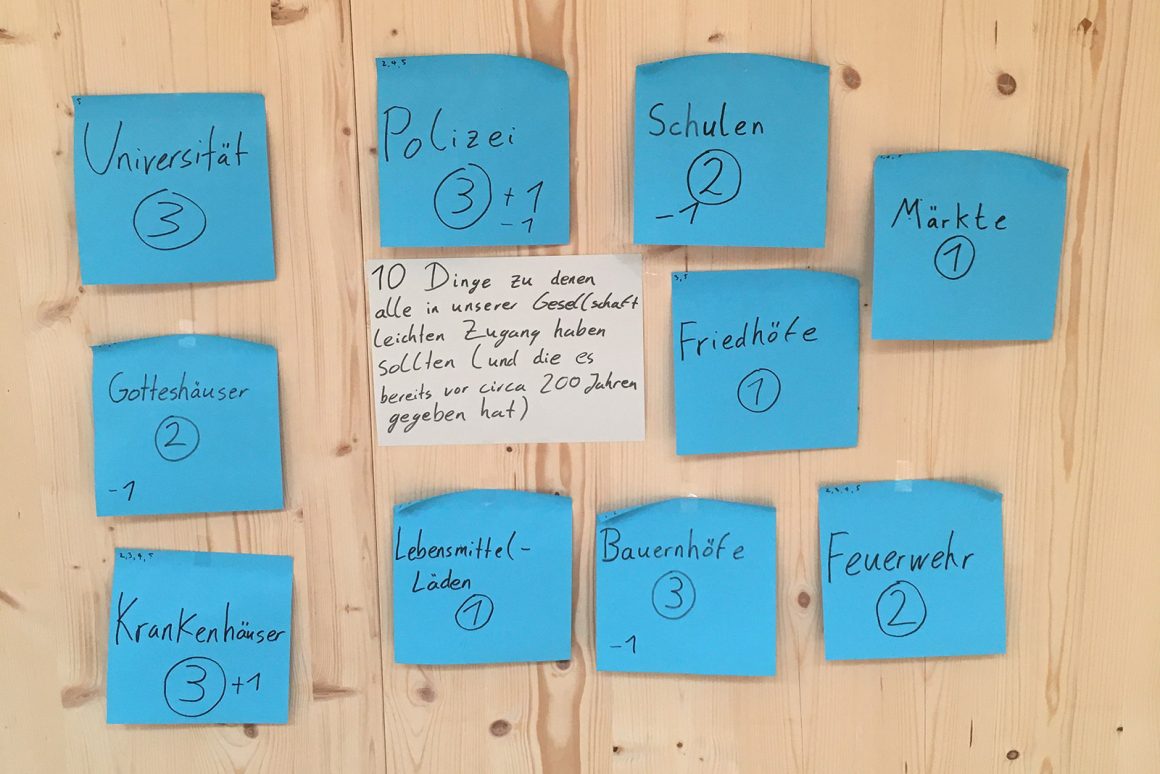 5
Universität
3
2,4,5
Polizei
3 +1
-1
Schulen
2
-1
Märkte
1
10 Dinge zu denen
alle in unserer Gesellschaft
leichten Zugang haben
sollten (und die es
bereits vor circa 200 Jahren
gegeben hat)
3,5
Friedhöfe
1
Gotteshäuser
2
-1
2,3,4,5
Krankenhäuser
3 +1
Lebensmittel-
Läden
1
Bauernhöfe
3
-1
2,3,4,5
Feuerwehr
2